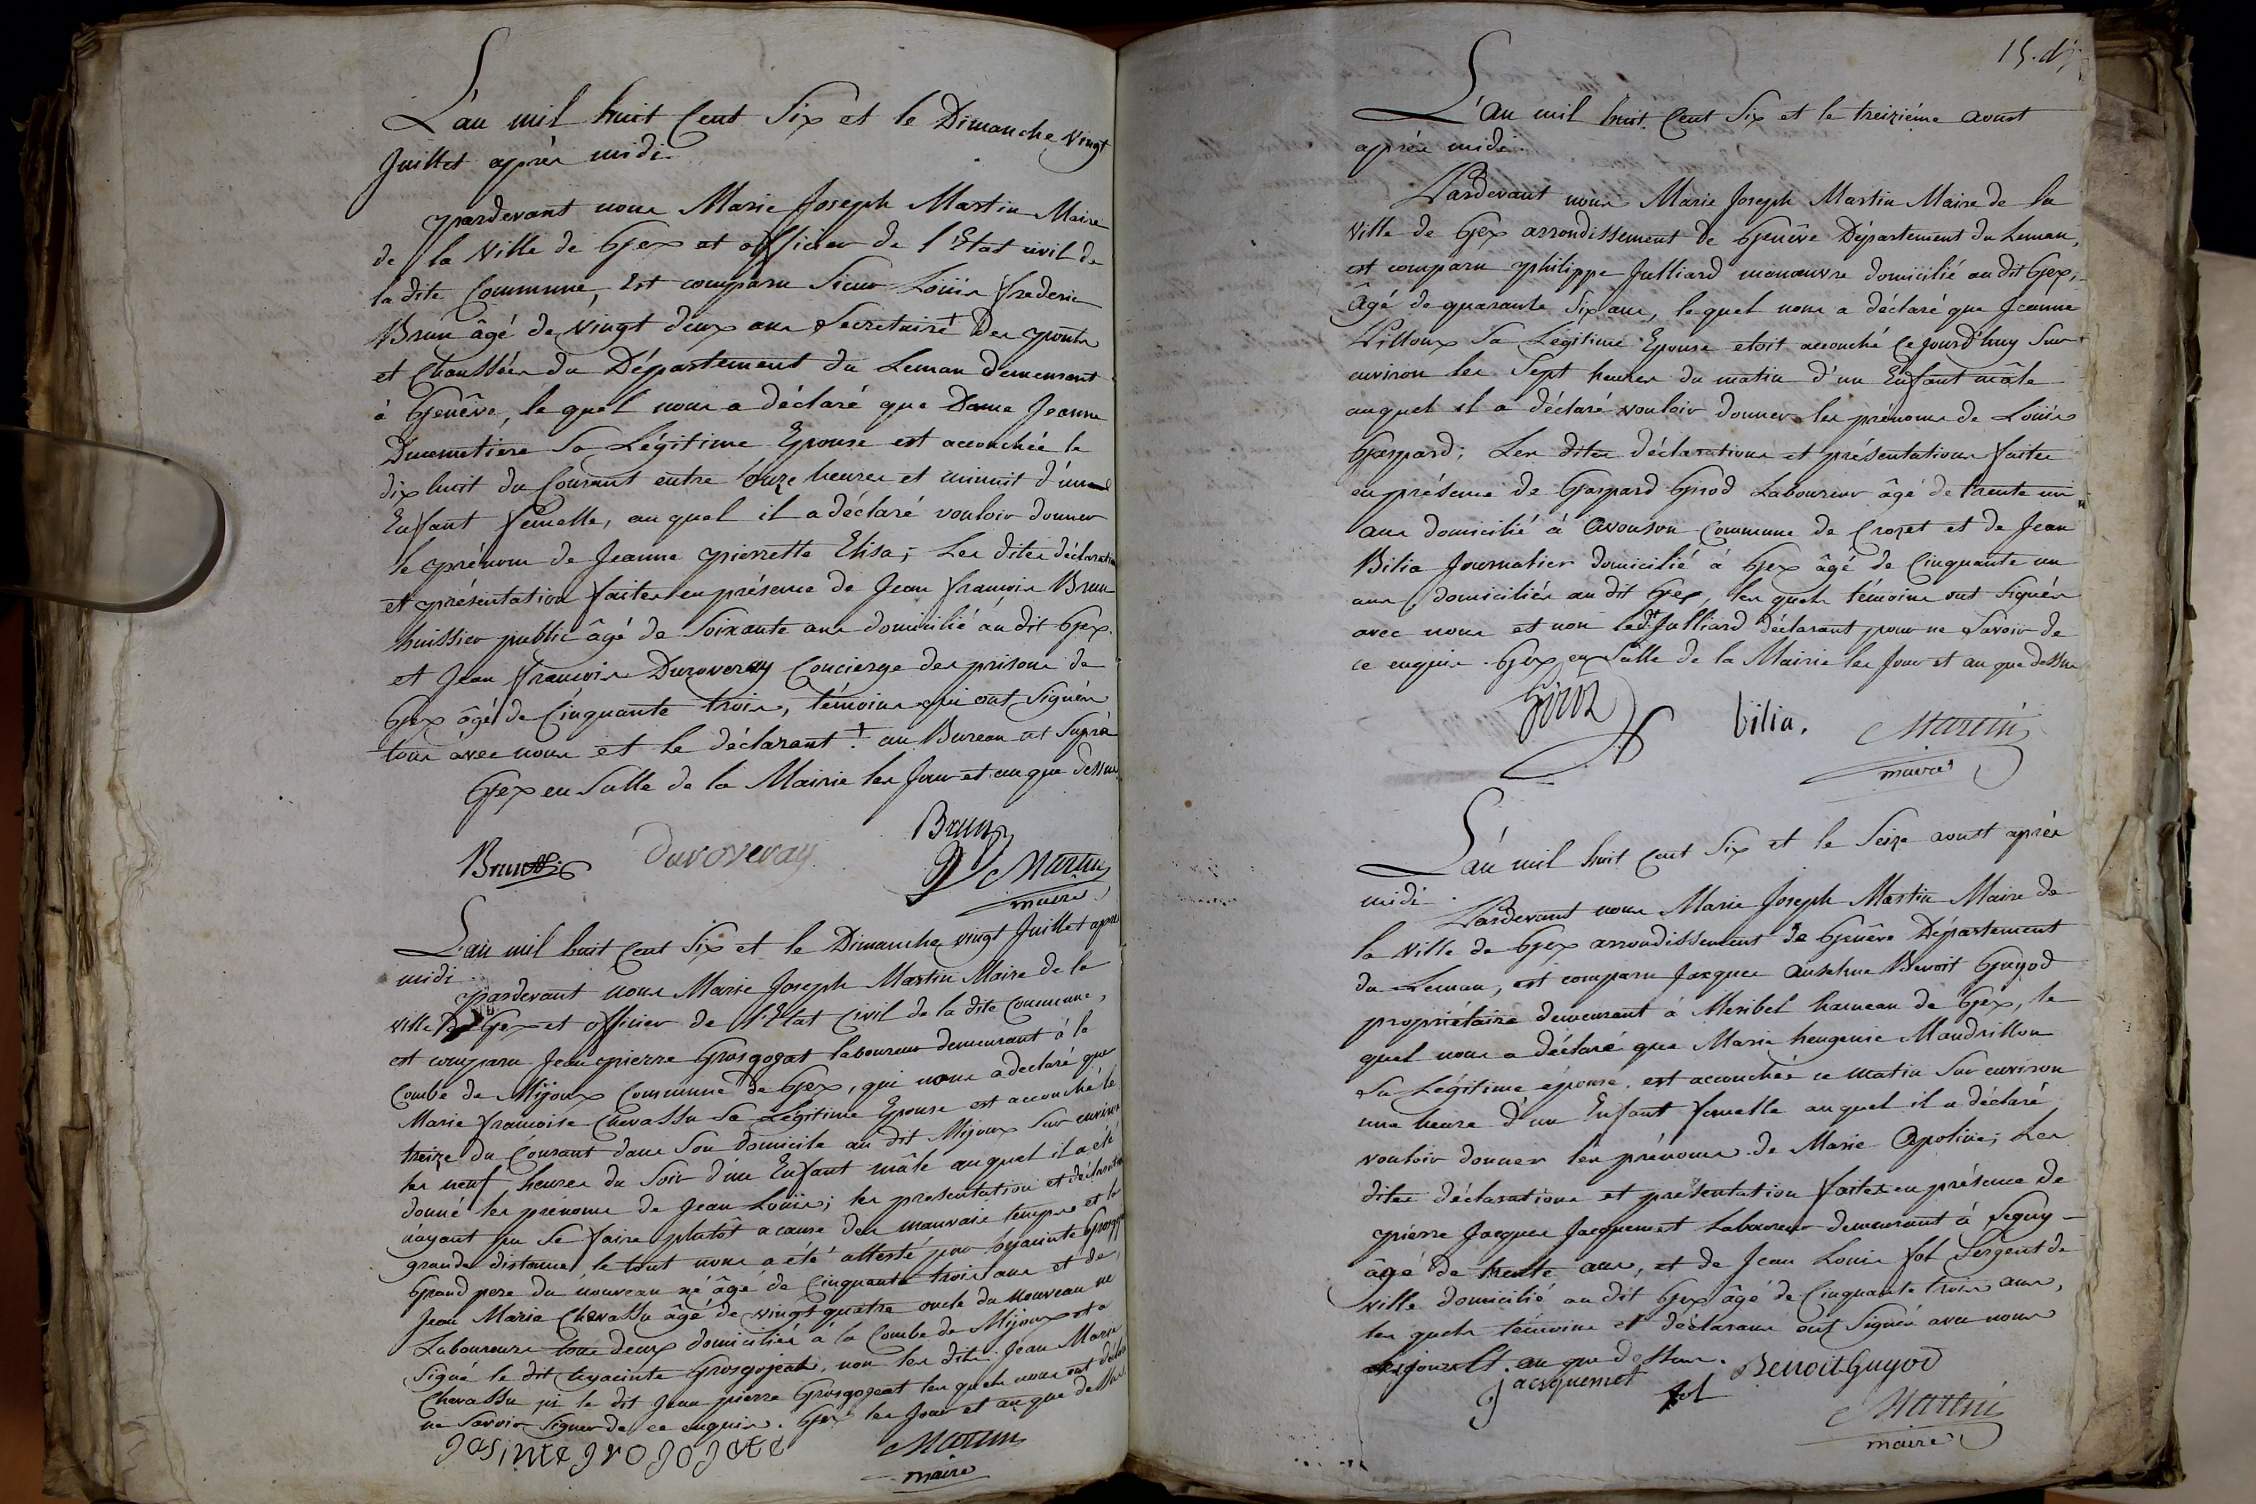 L'an mil huit Cent Six et le Dimanche vingt
Juillet après midi
pardevant nous Marie Joseph Martin Maire
de la Ville de Gex et officier de l'Etat civil de
la dite Commune, Est comparu Sieur Loüis frederic
Brun âgé de vingt deux ans Secretaire des ponts
et Chaussées du Département du Leman demeurant
à Genêve, le quel nous a déclaré que Dame Jeanne
Ducemetiere Sa Légitime Epouse est accouchée le
dix huit du Courant entre onze heures et minuit d'un
Enfant femelle, auquel il a déclaré vouloir donner
le prénom de Jeanne pierrette Elisa; Les dites déclaration
et présentation faites en présence de Jean françois Brun
huissier public âgé de Soixante ans domicilié au dit Gex.
et Jean françois Duroveray Concierge des prisons de
Gex âgé de Cinquante trois, témoins qui ont Signés
tous avec nous et le déclarant au Bureau
Gex en Salle de la Mairie les Jour et an que dessus
Brun
Brun duroveray
Martin
maire
L'an mil huit Cent Six et le Dimanche vingt Juillet après
midi
pardevant nous Marie Joseph Martin Maire de la
ville de Gex et officier de l'Etat Civil de la dite Commune,
est comparu Jean pierre Grosgogeat laboureur demeurant à la
Combe de Mijoux Commune de Gex, qui nous a declaré que
Marie françoise Chevassu Sa Légitime Epouse est accouché le
treize du Courant dans Son domicile au dit Mijoux Sur environ
les neuf heures du Soir d'un Enfant mâle auquel il a été
donné les prénoms de Jean Loüis; les presentation et déclaration
n'ayant pu Se faire plutôt a cause des mauvais temps et la
grande distance, le tout nous a été attesté par hyacinte
Grand pere du nouveau né âgé de Cinquante trois ans et de
Jean Marie Chevassu âgé de vingt quatre oncle du nouveau né
Laboureurs tous deux domiciliés à la Combe de Mijoux et a
Signé le dit hyacinte Grosgojeat, non les dits Jean Marie
Chevassu ni le dit Jean pierre Grosgogeat les quels nous ont déclaré
ne Savoir Signer de ce enquis. Gex les Jour et an que dessus.
Jasinte grojojate Martin
maire
15.
L'an mil huit Cent Six et le treizième aoust
après midi.
Pardevant nous Marie Joseph Martin Maire de la
Ville de Gex arrondissement de Genêve Département du Leman,
est comparu philippe Julliard manœuvre domicilié au dit Gex,
âgé de quarante Six ans, le quel nous a déclaré que Jeanne
Pilloux Sa Légitime Epouse etoit accouché Ce jourd'huy Sur
environ les Sept heures du matin d'un Enfant mâle
auquel il a déclaré vouloir donner les prénoms de Loüis
Gaspard; Les dites déclarations et présentations faites
en présence de Gaspard Girod Laboureur âgé de trente un
ans domicilié à avouson Commune de Crozet et de Jean
Bilia Journalier domicilié à Gex âgé de Cinquante un
ans, domiciliés au dit Gex, les quels témoins ont Signés
avec nous et non led.t Julliard déclarant pour ne Savoir de
ce enquis. Gex en Salle de la Mairie les Jour et an que dessus
Giroz bilia. Martin
maire
L'an mil huit Cent Six et le Seize aoust après
midi.
Pardevant nous Marie Joseph Martin Maire de
la Ville de Gex arrondissement de Genêve Département
du Leman, est comparu Jacques anselme Benoit Guyod
propriétaire demeurant à Meribel hameau de Gex, le
quel nous a déclaré que Marie heugenie Mandrillon
Sa Légitime épouse est accouchée ce matin Sur environ
une heure d'un Enfant femelle auquel il a déclaré
vouloir donner les prénoms de Marie Apoline; Les
dites déclarations et présentation faites en présence de
pierre Jacques Jacquemet Laboureur demeurant à Seguy
âgé de trente ans, et de Jean Louis fol Sergent de
ville domicilié au dit Gex âgé de Cinquante trois ans,
les quels témoins et déclarans ont Signés avec nous
les jour et an que dessus. Benoit Guyod
Jacquemet fol
Martin
maire